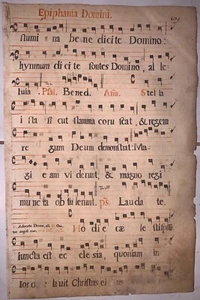 Epiphania Domini.
flumi na be ne dicite Domino:
hymnum dicite fontes Domino, al le
luia. Psal. Bened. Aña. Stel la
ista sicut flamma coru scat, & regem
re gum Deum demonstrat: Ma
gi e am viderunt, & magno regi
mu ne ra ob tu lerunt. ps. Lauda te.
Ho di e cæ le sti sponso
juncta est ec cle sia, quoniam in
Jor da lavit Christus e